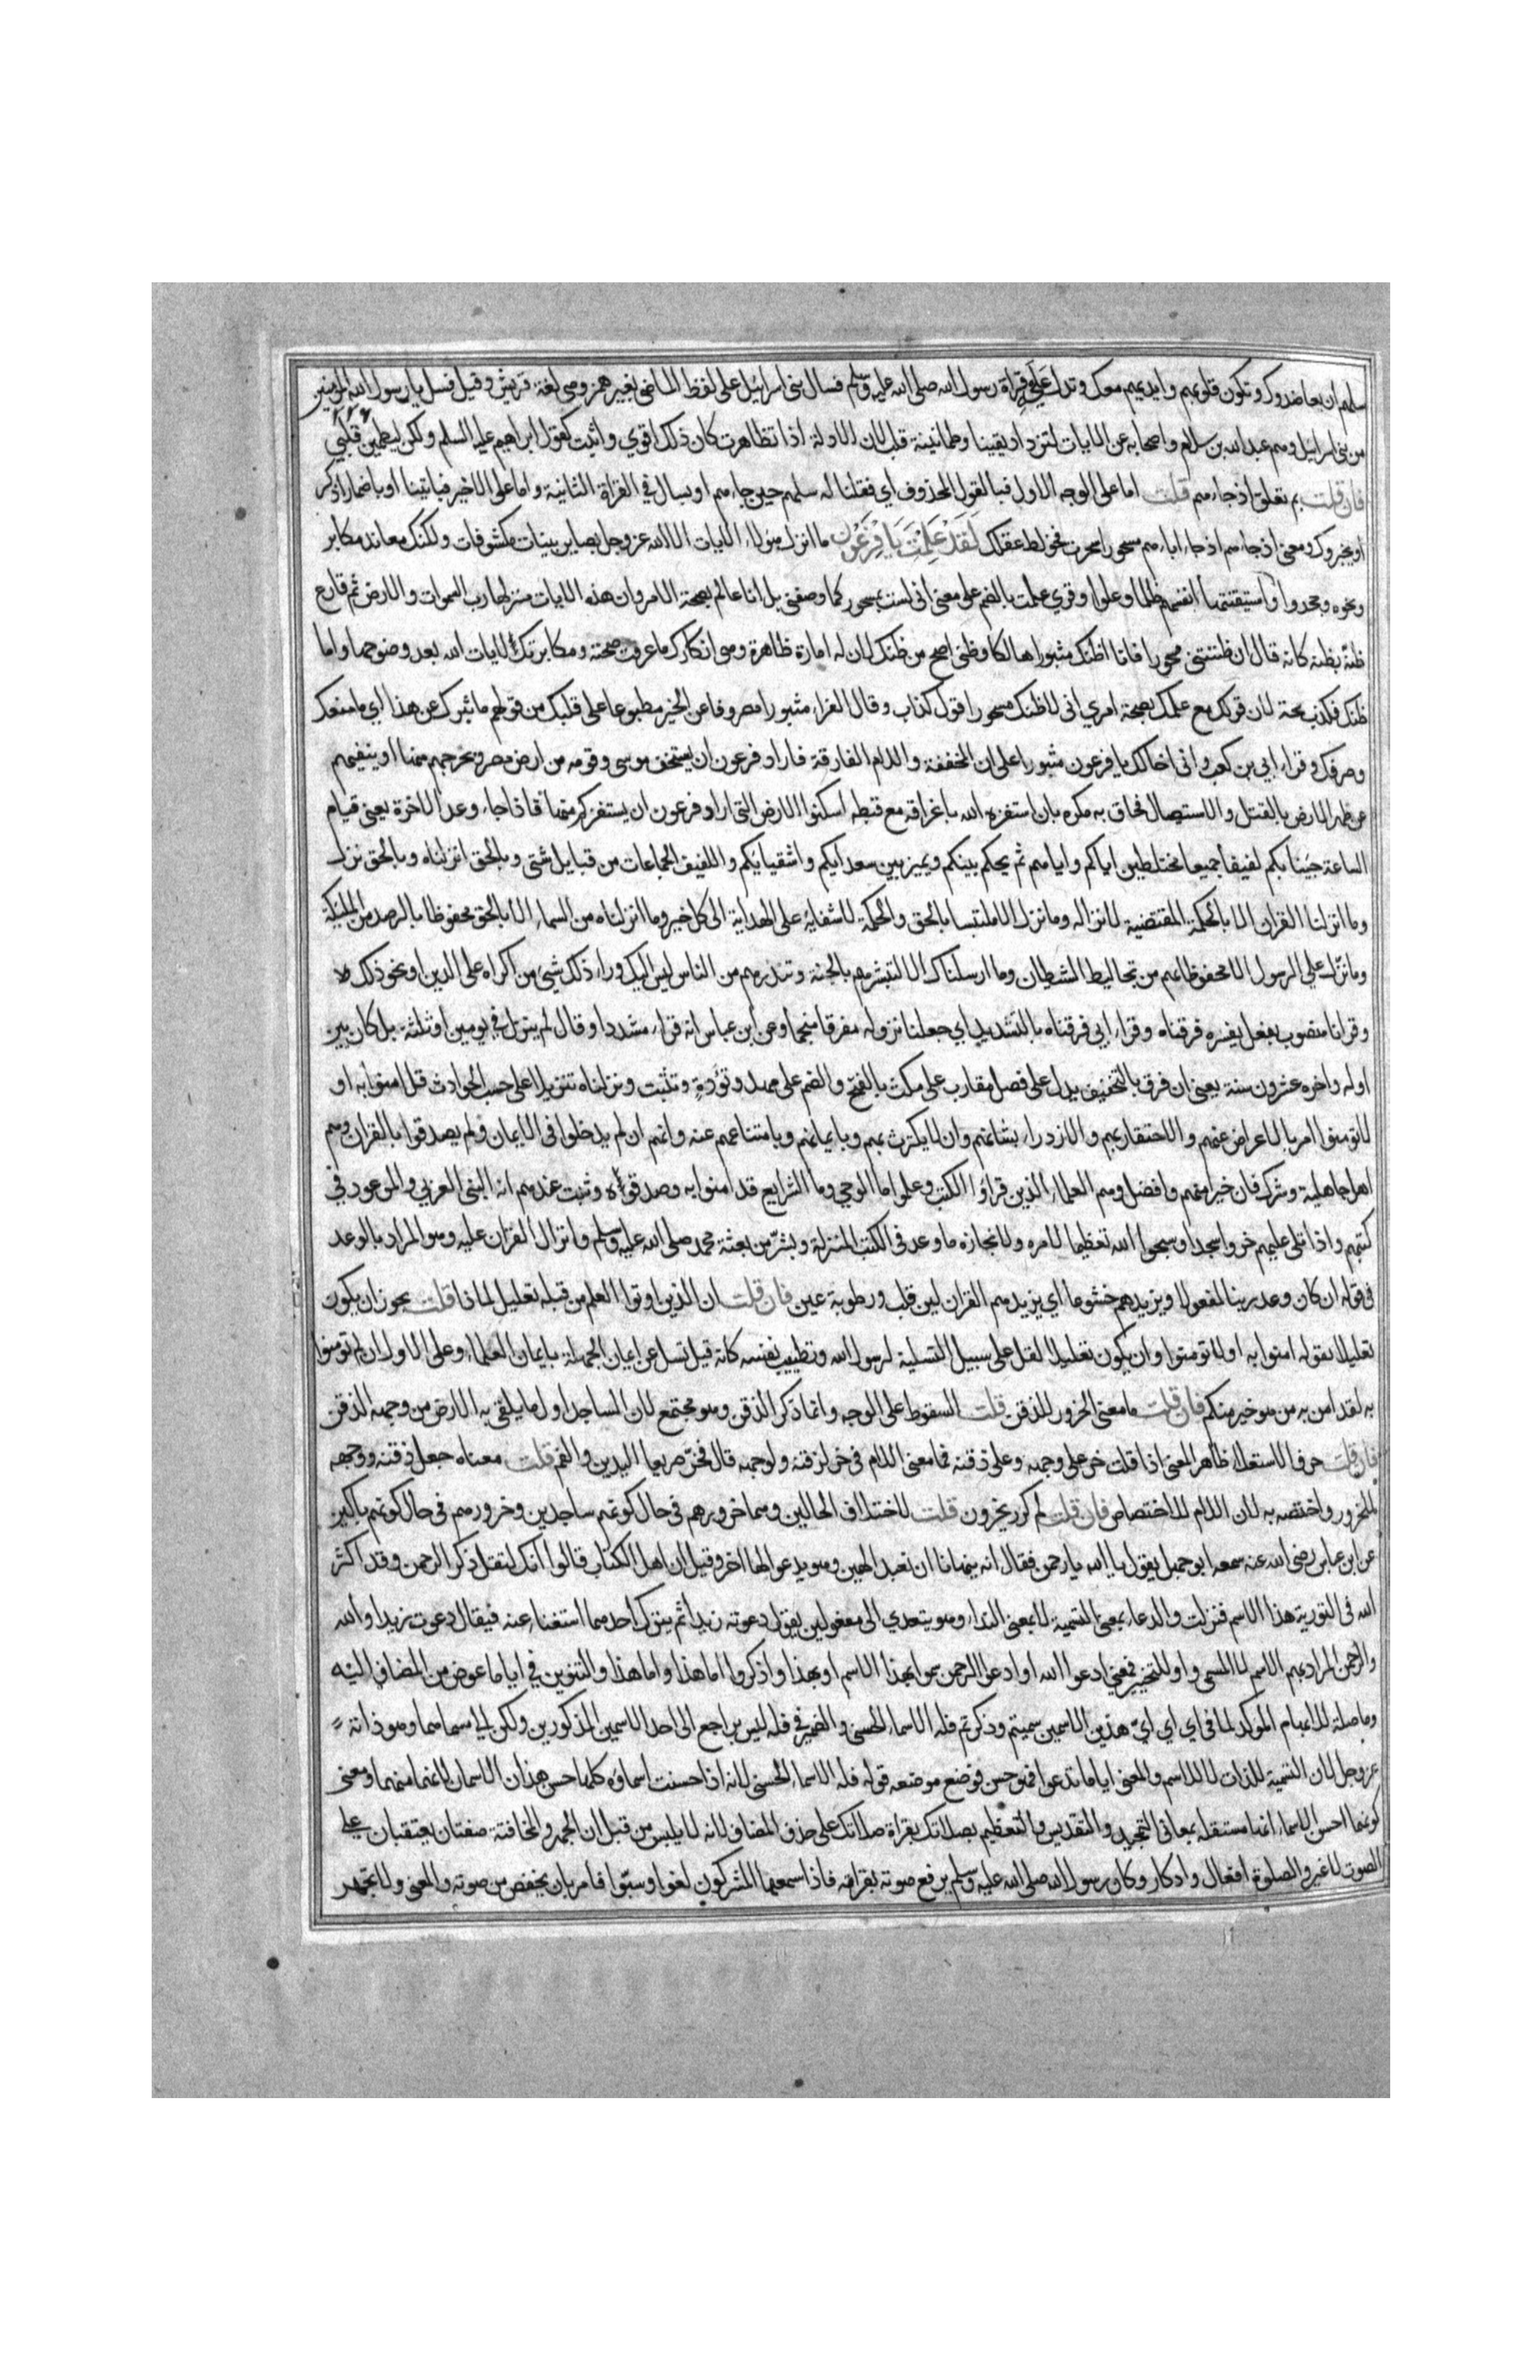 سلهم ان يعاضدوك وتكون قلوبهم وايديهم معك وتدل عليه قراة رسول الله صلى الله عليه وسلم فسال بنى اسرائيل على لفظ الماضى بغير همز وهى لغة قريش وقيل فسل يا رسول الله المومنين
من بنى اسرائيل وهم عبد الله بن سلام واصحابه عن الايات لتزداد يقينا وطمانينة قلب لان الادلة اذا تظاهرت كان ذلك اقوي واثبت كقول ابراهيم عليه السلم ولكن ليطمين قلبي
فان قلت بم تعلق اذ جاءهم قلت اما على الوجه الاول فبالقول المحذوف اي فقلنا له سلهم حين جاءهم او بسال في القراة الثانية واما على الاخير فباتينا او باضمار اذكر
او يخبروك ومعنى اذ جاءهم اذ جاء اباءهم مسحورا سحرت فخولط عقلك لَقَدْ عَلِمْتَ يَا فِرْعَوْن ما انزل هؤلاء الايات الا الله عز وجل بصاير بينات مكشوفات ولكنك معاند مكابر
ونحوه وجحدوا بها واستيقنتها انفسهم ظلما وعلوا وقري علمت بالضم على معنى انى لست بمسحور كما وصفتنى بل انا عالم بصحة الامر وان هذه الايات منزلها رب السموات والارض ثم قارع
ظنه بظنه كانه قال ان ظننتنى مسحورا فانا اظنك مثبورا هالكا وظنى اصح من ظنك لان له امارة ظاهرة وهى انكارك ما عرفت صحته ومكابرتك لايات الله بعد وضوحها واما
ظنك فكذب بحت لان قولك مع علمك بصحة امري انى لاظنك مسحورا قول كذاب وقال الفراء مثبورا مصروفا عن الخير مطبوعا على قلبك من قولهم ما ثبرك عن هذا اي ما منعك
وصرفك وقراء ابي بن كعب وانى اخالك يا فرعون مثبورا على ان المخففة واللام الفارقة فاراد فرعون ان يستخف موسى وقومه من ارض مصر ويخرجهم منها او ينفيهم
عن ظهر الارض بالقتل والاستيصال فحاق به مكره بان استفزه الله باغراقه مع قبطه اسكنوا الارض التى اراد فرعون ان يستفزكم منها فاذا جاء وعد الاخرة يعنى قيام
الساعة جينا بكم لفيفا جميعا مختلطين اياكم واياهم ثم يحكم بينكم ويميز بين سعدايكم واشقيايكم واللفيف الجماعات من قبايل شتى وبالحق انزلناه وبالحق نزل
وما انزلنا القران الا بالحكمة المقتضية لانزاله وما نزل الا ملتبسا بالحق والحكمة لاشتماله على الهداية الى كل خير وما انزلناه من السماء الا بالحق محفوظا بالرصد من المليكة
وما نزل على الرسول الا محفوظا بهم من تخاليط الشيطان وما ارسلناك الا لتبشرهم بالجنة وتنذرهم من النار ليس اليك وراء ذلك شيى من اكراه على الدين او نحو ذلك
وقرانا منصوب بفعل يفسره فرقناه وقراء ابي فرقناه بالتشديد اي جعلنا نزوله مفرقا منجما وعن ابن عباس انه قراء مشددا وقال لم ينزل في يومين او ثلثة بل كان بين
اوله واخره عشرون سنة يعنى ان فرق بالتخفيف يدل على فصل مقارب على مكث بالفتح والضم على مهل وتؤدة وتثبت ونزلناه تنزيلا على حسب الحوادث قل امنوا به او
لا تومنوا امر بالاعراض عنهم والاحتقار بهم والازدراء بشانهم وان لا يكترث بهم وبايمانهم وبامتناعهم عنه وانهم ان لم يدخلوا فى الايمان ولم يصدقوا بالقران وهم
اهل جاهلية وشرك فان خيرا منهم وافضل وهم العلماء الذين قراوا الكتب وعلموا ما الوحي وما الشرايع قد امنوا به وصدقوه وثبت عندهم انه النبى العربى والموعود في
كتبهم واذا تلى عليهم خروا سجدا وسبحوا الله تعظيما لامره ولانجازه ما وعد فى الكتب المنزلة وبشر من بعثة محمد صلى الله عليه وسلم وانزال القران عليه وهو المراد بالوعد
فى قوله ان كان وعد ربنا لمفعولا ويزيدهم خشوعا اي يزيدهم القران لين قلب ورطوبة عين فان قلت ان الذين اوتوا العلم من قبله تعليل لماذا قلت يجوز ان يكون
تعليلا لقوله امنوا به او لا تومنوا وان يكون تعليلا لقل على سبيل التسلية لرسول الله وتطييب نفسه كانه قيل تسل عن ايمان الجهلة بايمان العلماء وعلى الاول ان لم تومنوا
به لقد امن به من هو خير منكم فان قلت ما معنى الخرور للذقن قلت السقوط على الوجه وانما ذكر الذقن وهو مجتمع لان الساجد اول ما يلقى به الارض من وجهه الذقن
فان قلت حرف الاستعلاء ظاهر المعنى اذا قلت خر على وجهه وعلى ذقنه فما معنى اللام فى خر لذقنه ولوجهه قال فخر صريعا لليدين والفم قلت معناه جعل ذقنه ووجهه
للخرور واختصه به لان اللام للاختصاص فان قلت لم كرر يخرون قلت لاختلاف الحالين وهما خرورهم فى حال كونهم ساجدين وخرورهم فى حال كونهم باكين
عن ابن عباس رضى الله عنه سمعه ابو جهل يقول يا الله يا رحمن فقال انه ينهانا ان نعبد الهين وهو يدعو الها اخر وقيل ان اهل الكتاب قالوا انك لتقل ذكر الرحمن وقد اكثر
الله فى التورية هذا الاسم فنزلت والدعاء بمعنى التسمية لا بمعنى النداء وهو يتعدي الى مفعولين يقول دعوته زيدا ثم يترك احدهما استغناء عنه فيقال دعوت زيدا والله
والرحمن المراد بهم الاسم لا المسمى واو للتخيير فمعنى ادعوا الله او ادعوا الرحمن سموا بهذا الاسم او بهذا واذكروا اما هذا واما هذا والتنوين في ايا ما عوض من المضاف اليه
وما صلة للابهام الموكد لما فى اي اي اي هذين الاسمين سميتم وذكرتم فله الاسماء الحسنى والضمير فى فله ليس براجع الى احد الاسمين المذكورين ولكن الى مسماهما وهو ذاته
عز وجل لان التسمية للذات لا للاسم والمعنى ايا ما تدعوا فهو حسن فوضع موضعه قوله فله الاسماء الحسنى لانه اذا حسنت اسماوه كلها حسن هذان الاسمان لانهما منهما ومعنى
كونهما احسن الاسماء انها مستقلة بمعانى التمجيد والتقديس والتعظيم بصلاتك بقراة صلاتك على حذف المضاف لانه لا يلبس من قبل ان الجهر والمخافتة صفتان يعتقبان على
الصوت لا غير والصلوة افعال واذكار وكان رسول الله صلى الله عليه وسلم يرفع صوته بقراته فاذا سمعها المشركون لغوا وسبوا فامر بان يخفض من صوته والمعنى ولا تجهر